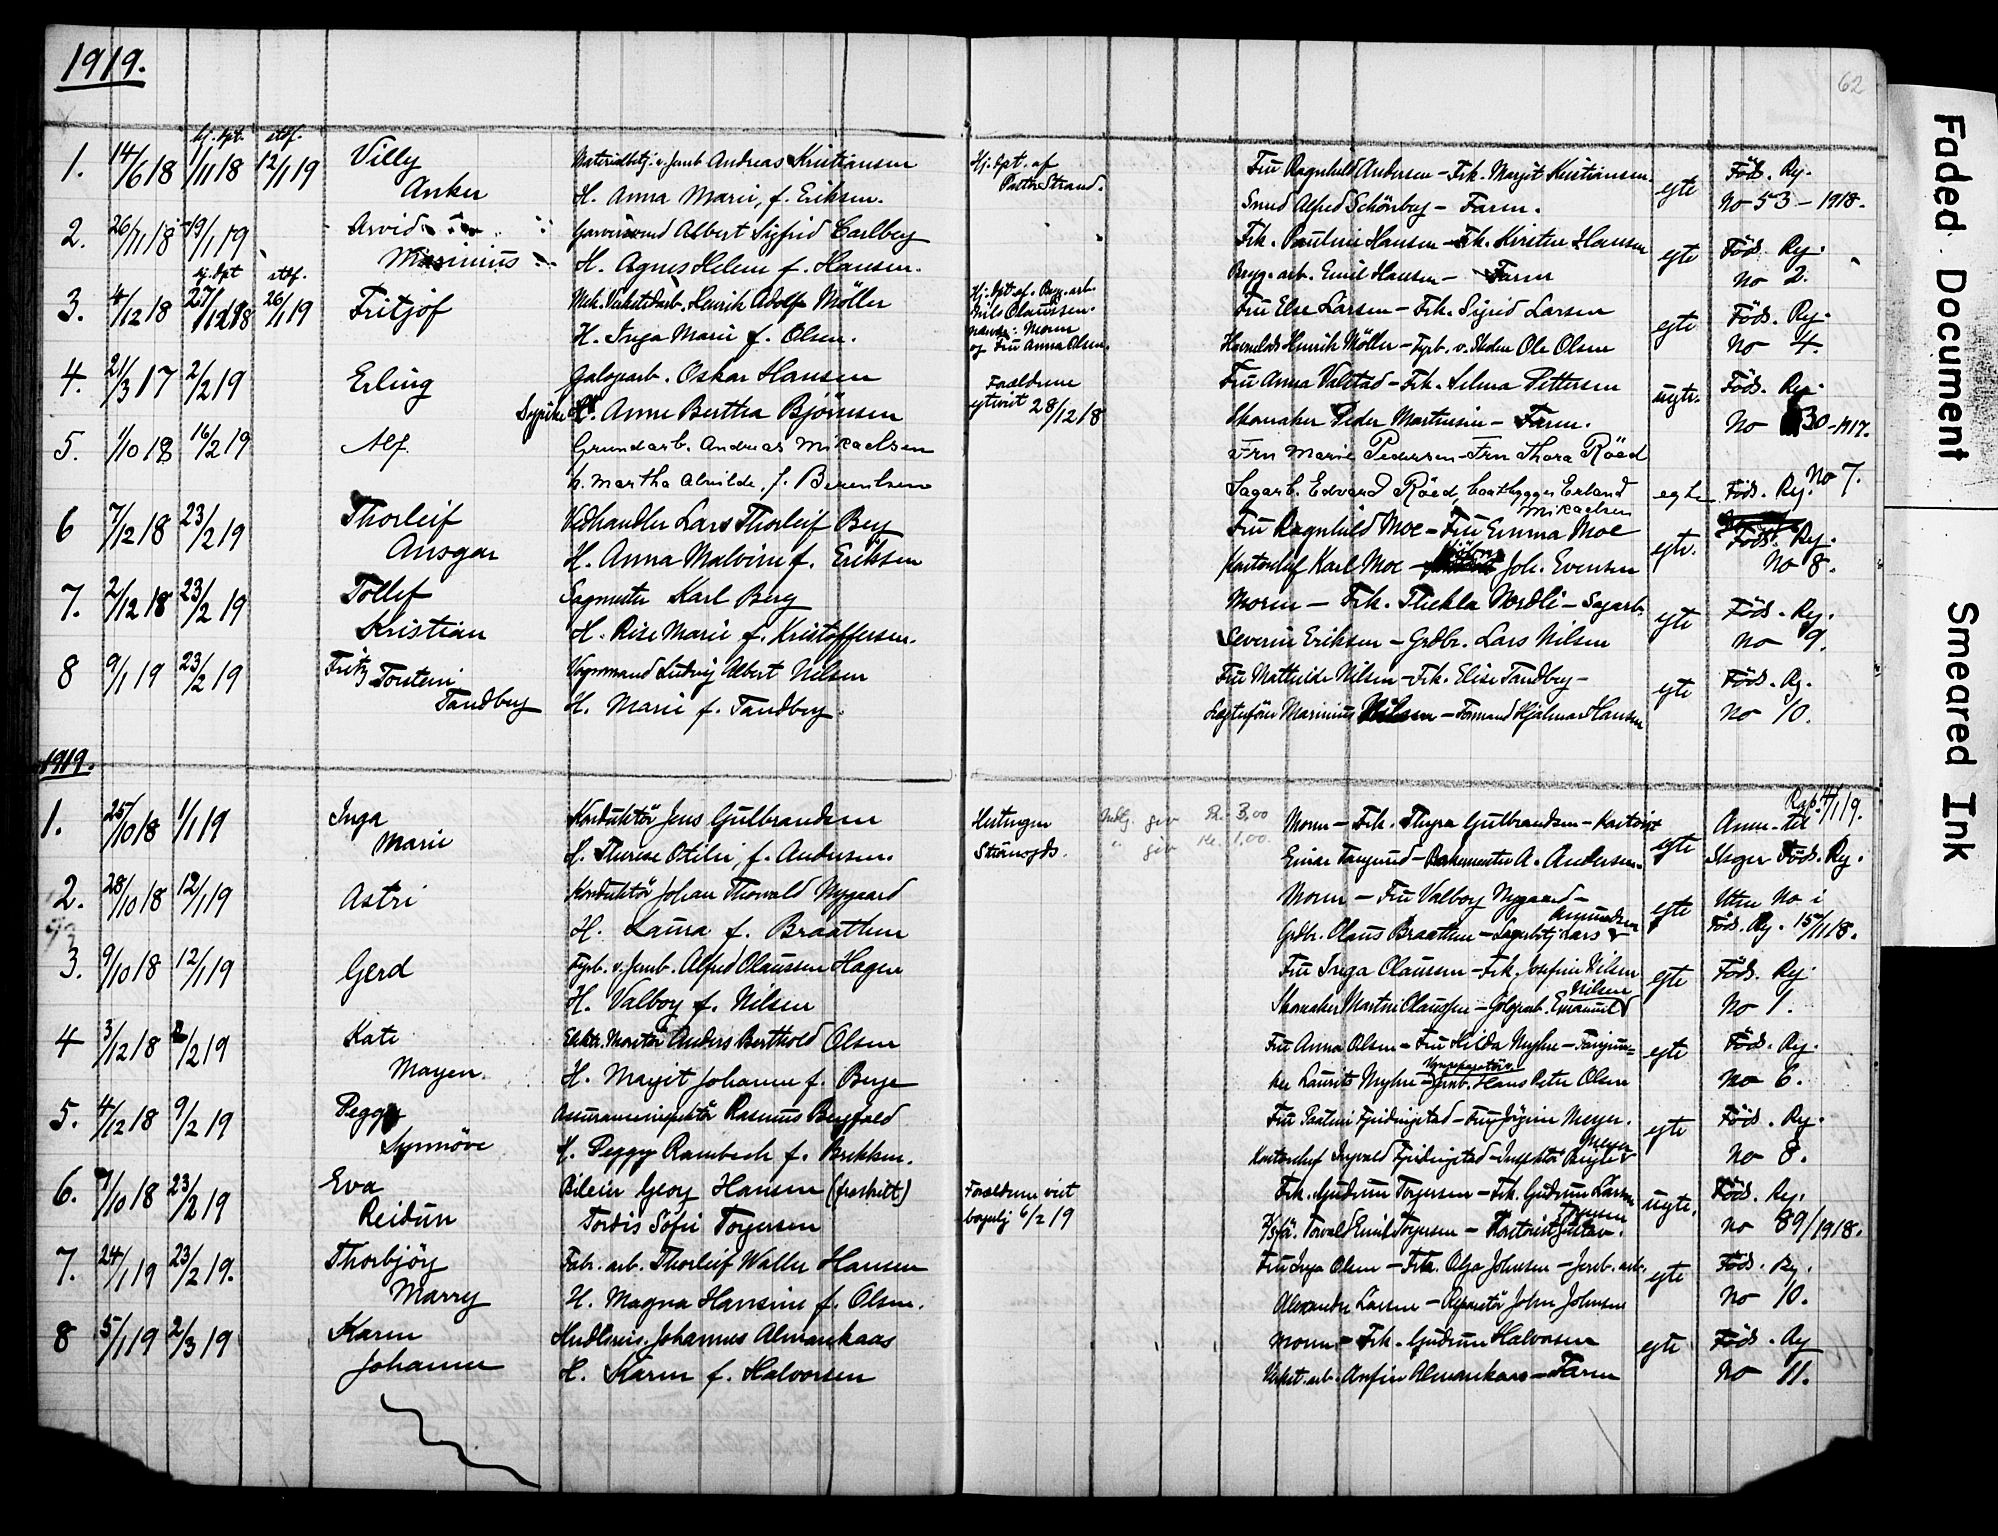 1919.
62
hj. dpt. stdf.
1. 14/6 18 1/11 18 12/1 19 Villy Materialbetj. v. Jernb. Andreas Kristiansen Hj. dpt. af Fru Ragnhild Andersen - Frk. Margit Kristiansen. egte Föds. Reg.
Anker H. Anna Marie, f. Eriksen. Pastor Strand. Smed Alfred Schönberg - Faren. No 53 - 1918.
2. 26/11 18 19/1 19 Arvid Albert Sigfrid Carlberg Frk. Pauline Hansen - Frk. Kirsten Hansen egte Föds. Reg.
Marinius H. Agnes Helene f. Hansen. Brygg. arb. Emil Hansen - Faren No 2.
hj. dpt stdf.
3. 4/12 18 27/12 18 26/1 19 Fritjof Mek. Verkstedarb. Henrik Adolf Möller Hj. dpt. af. Bryg. arb. Fru Else Larsen - Frk. Sigrid Larsen egte Föds. Reg.
Nils Olaussen.
H. Inga Marie f. Olsen. Moren Henrik Möller - Fyrb. v. Ole Olsen No 4.
og Fru Anna Olsen.
4. 21/3 17 2/2 19 Erling Galoparb. Oskar Hansen Forældrene Fru Anna Valstad - Frk. Selma Pettersen uegte. Föds. Reg.
Anne Bertha Björnsen egteviet 28/12 18 Skomaker Peder Martinsen - Faren. No 30 - 1917.
5. 1/10 18 16/2 19 Alf Grundarb. Andreas Mikaelsen Fru Marie Pedersen - Fru Thora Röed
h. Martha Alvilde, f. Berentsen Sagarb. Edvard Röed, baatbygger Erland Mikaelsen egte Föds. Reg. No 7.
6 7/12 18 23/2 19 Thorleif Vedhandler Lars Thorleif Berg Fru Ragnhild Moe - Fru Emma Moe egte. Föds. Reg.
Ansgar H. Anna Malvine f. Eriksen Kontorchef Karl Moe - Joh. Evensen No 8.
7. 2/12 18 23/2 19 Tollef Sagmester Karl Berg Moren - Frk. Thekla Nordli - Sagarb. egte Föds. Reg.
Kristian H. Rise Marie f. Kristoffersen. Severin Eriksen - Grdbr. Lars Nilsen No 9.
8 9/1 19 23/2 19 Fritz Torstein Vognmand Ludvig Albert Nilsen Fru Mathilde Nilsen - Frk. Elise Tandberg - egte Föds. Reg.
Tandberg H. Marie f. Tandberg. Marinius Nilsen - Formand Hjalmar Hansen No 10.
1919.
1. 25/10 18 1/1 19 Inga Konduktör Jens Gulbrandsen giv kr. 3.00 Moren - Frk. Thyra Gulbrandsen - Kontorist egte Anm. til
Marie H. Therese Otilie, f. Andersen. Strömsgds. " giv kr. 1.00. Einar Tangerud - A. Andersen. Skoger Föds. Reg.
2. 28/10 18 12/1 19 Astri Konduktör Johan Thorvald Nygaard Moren - Fru Valborg Nygaard - egte Uten No i
H. Laura f. Braathen Grdbr. Olaus Braathen - Lagerbetj. Lars Amundsen Föds. Reg. 15/11 18.
3. 9/10 18 12/1 19 Gerd Fyrb. v. Jernb. Alfred Olaussen Hagen Fru Inga Olaussen - Frk. Josefine Nilsen egte Föds. Reg.
H. Valborg f. Nilsen Skomaker Martin Olaussen - Galoparb. Emanuel Nilsen No 1.
4 3/12 18 2/2 19 Kate Elektr. Montör Anders Berthold Olsen Fru Anna Olsen - Fru Hilda Myhre - egte Föds. Reg.
Mayen. H. Margit Johanne f. Berge Laurits Myhre - Hans Peter Olsen No 6.
5. 4/12 18 9/2 19 Peggy Assuranceinspektör Rasmus Bergfald Meyer. egte Föds. Reg.
Synnöve H. Peggy Rambech f. Brekken. Kontorchef Ingvald - Inspektör Birger Meyer No 8.
6. 7/10 18 23/2 19 Eva Bileier Georg Hansen (fraskilt) Forældrene viet Frk. Gudrun Torgersen - Frk. Gudrun Larsen uegte. Föds. Reg.
Reidun Tordis Sofie Torgersen borgerlig 6/2 19 Torvald Emil Torgersen - Gustav Torgersen. No 89/1918.
7. 24/1 19 23/2 19. Thorbjörg Fabr. arb. Thorleif Walter Hansen Fru Inga Olsen - Frk. Olga Johnsen - Jernb. arb. egte Föds. Reg.
Marry H. Magna Hansine f. Olsen. Alexander Larsen - Reparatör John Johnsen No 10.
8 5/1 19 2/3 19 Karen Johannes Almankaas Moren - Frk. Gudrun Halvorsen egte Föds. Reg
Johanne H. Karen f. Halvorsen Verkst. arb. Anfin Almankaas - Faren No 11.
Faded Document
Smeared Ink